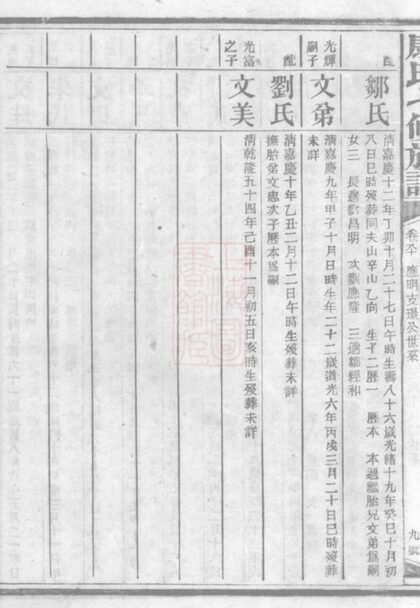 配
鄒氏
清嘉慶十二年丁卯十月二十七日午時生壽八十六歲光緒十九年癸巳十月初
八日巳時歿葬同夫山辛山乙向 生子二歷一 歷本 本過繼胞兄文弟為嗣
女三 長適 昌明 次劉應隆 三適鄒經和
光輝
嗣子
文弟
清嘉慶九年甲子十月 日時生年二十二歲道光六年丙戌三月二十日巳時歿葬
未詳
配
劉氏
清嘉慶十年乙丑二月十二日午時生歿葬未詳
撫胞弟文忠次子歷本為嗣
光富
之子
文美
清乾隆五十四年己酉十一月初五日亥時生歿葬未詳
上海圖
書館藏